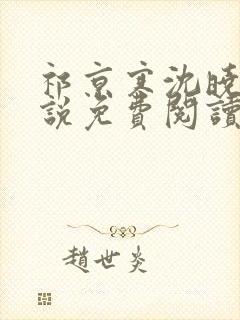 祁京寒沈晚
說免費閱讀
趙世炎